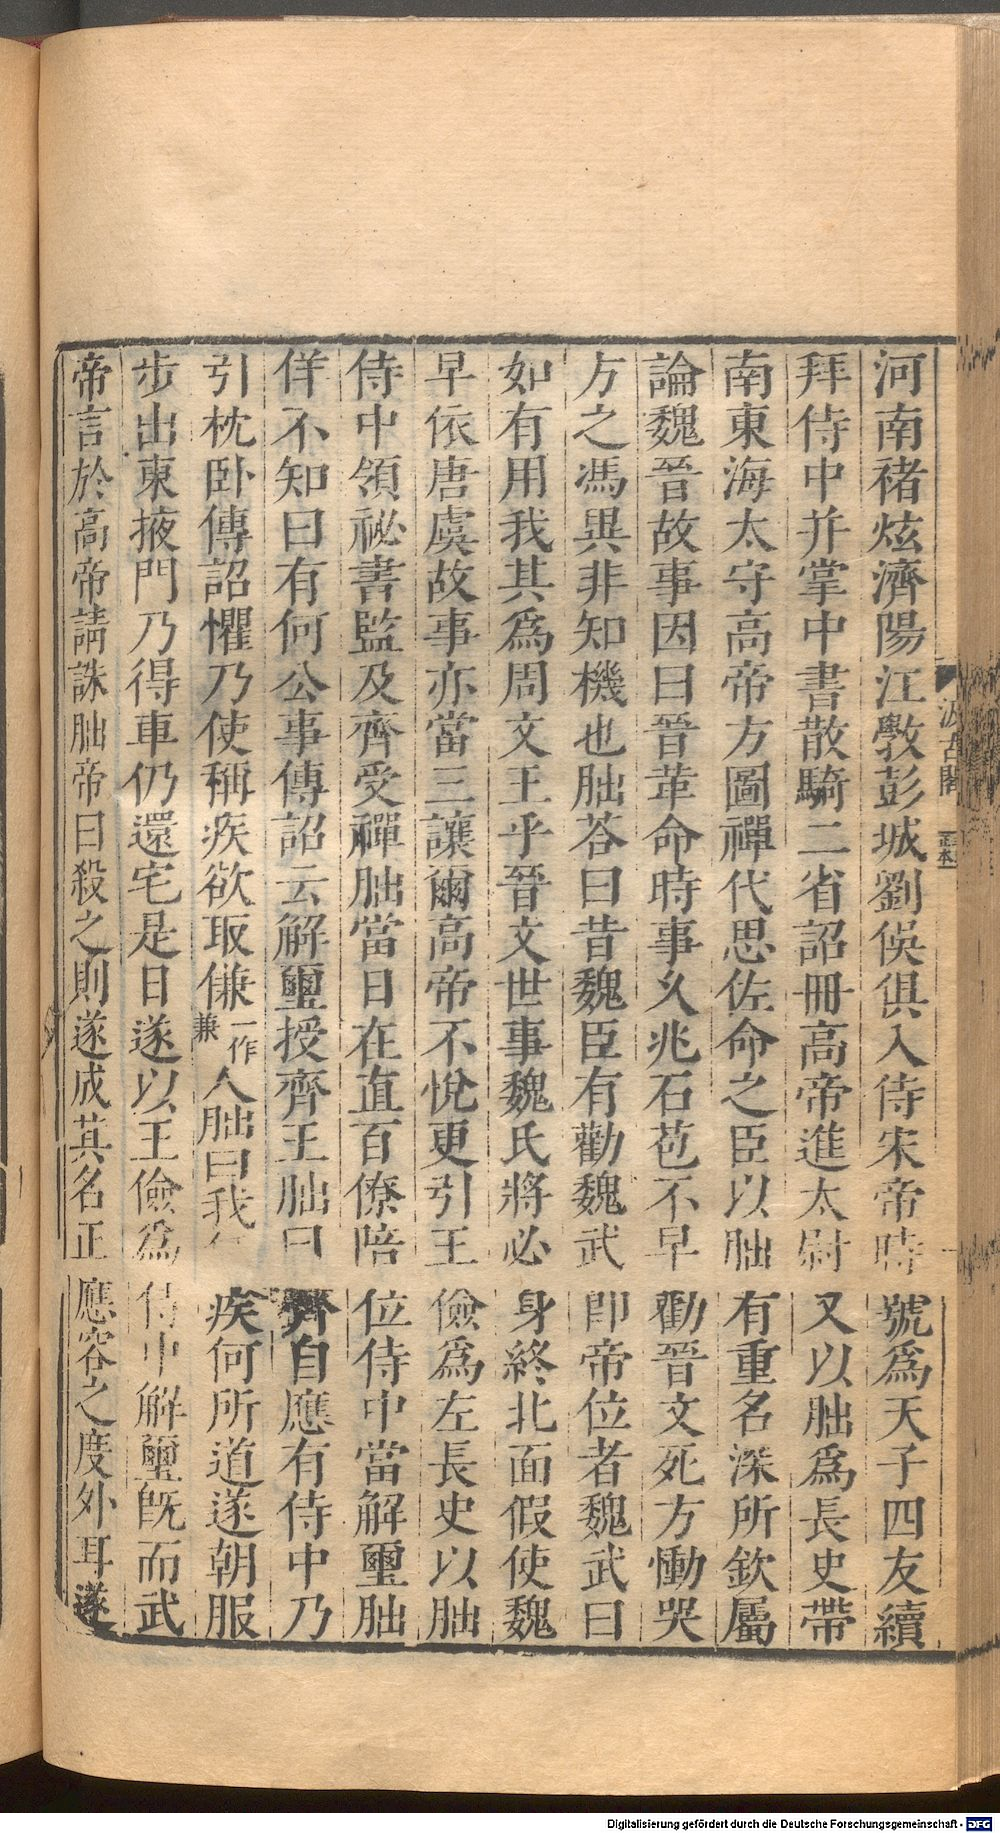 河南褚炫濟陽江斆彭城劉俁俱入侍宋帝時號爲天子四友續
拜侍中并掌中書散騎二省詔冊高帝進太尉又以朏爲長史帶
南東海太守高帝方圖禪代思佐命之臣以朏有重名深所欽屬
論魏晉故事因曰晉革命時事久兆石苞不早勸晉文死方慟哭
方之馮異非知機也朏荅曰昔魏臣有勸魏武卽帝位者魏武曰
如有用我其爲周文王乎晉文世事魏氏將必身終北面假使魏
早依唐虞故事亦當三讓爾高帝不悅更引王儉爲左長史以朏
侍中領祕書監及齊受禪朏當日在直百僚陪位侍中當解璽朏
佯不知曰有何公事傳詔云解璽授齊王朏曰齊自應有侍中乃
引枕卧傳詔懼乃使稱疾欲取傔一作兼人朏曰我疾何所道遂朝服
步出東掖門乃得車仍還宅是日遂以王儉爲侍中解璽旣而武
帝言於高帝請誅朏帝曰殺之則遂成其名正應容之度外耳遂
汲古閣
正本
Digitalisierung gefördert durch die Deutsche Forschungsgemeinschaft - DFG